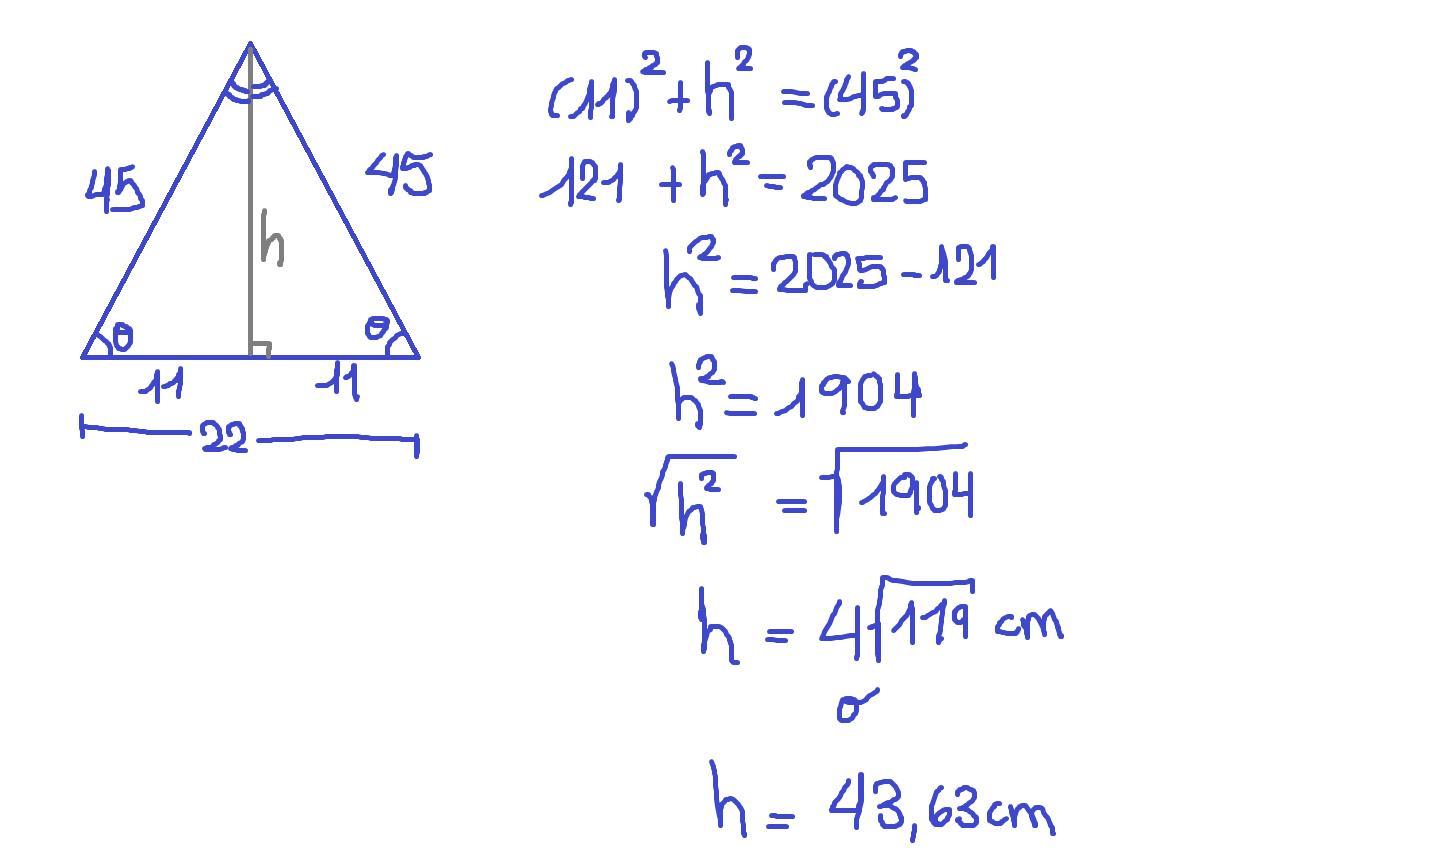 45
45
h
θ
θ
11
11
22
(11)² + h² = (45)²
121 + h² = 2025
h² = 2025 - 121
h² = 1904
√h² = √1904
h = 4√119 cm
o
h = 43,63 cm